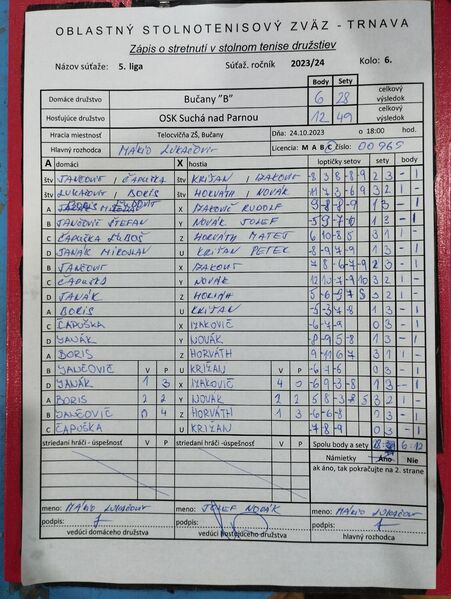 OBLASTNÝ STOLNOTENISOVÝ ZVÄZ - TRNAVA
Zápis o stretnutí v stolnom tenise družstiev
Názov súťaže: 5. liga Súťaž. ročník 2023/24 Kolo: 6.
Body Sety
Domáce družstvo Bučany "B" 6 28 celkový výsledok
Hosťujúce družstvo OSK Suchá nad Parnou 12 49 celkový výsledok
Hracia miestnosť Telocvičňa ZŠ, Bučany Dňa: 24.10.2023 o 18:00 hod.
Hlavný rozhodca MÁRIO LUKAČOVIČ Licencia M A B C číslo: 00965
A domáci X hostia loptičky setov sety body
štv JANČOVIČ / ČAPUŠKA štv KRIŽAN / IZAKOVIČ -8 3 8 -8 -9 2 3 - 1
štv LUKAČOVIČ / BORIS štv HORVÁTH / NOVÁK
A X IZAKOVIČ RUDOLF 1 3 - 1
B JANČOVIČ ŠTEFAN Y NOVÁK JOZEF 1 3 - 1
C ČAPUŠKA ĽUBOŠ Z HORVÁTH MATEJ 6 10 -8 5 3 1 1 -
D JANÁK MIROSLAV U KRIŽAN PETER -8 -9 7 -9 1 3 - 1
B JANČOVIČ X IZAKOVIČ 7 8 -6 -7 -9 2 3 - 1
C ČAPUŠKA Y NOVÁK 3 2 1 -
D JANÁK Z HORVÁTH 3 2 1 -
A BORIS U KRIŽAN 1 3 - 1
C ČAPUŠKA X IZAKOVIČ -6 -7 -9 0 3 - 1
D JANÁK Y NOVÁK -8 -9 5 -8 1 3 - 1
A BORIS Z HORVÁTH 3 1 1 -
B JANČOVIČ V P U KRIŽAN V P -6 -7 -6 0 3 - 1
D JANÁK 1 3 X IZAKOVIČ 4 0 -6 9 -3 -8 1 3 - 1
A BORIS 2 2 Y NOVÁK 2 2 5 8 -3 -8 5 3 2 1 -
B JANČOVIČ 0 4 Z HORVÁTH 1 3 -6 -6 -8 0 3 - 1
C ČAPUŠKA U KRIŽAN -7 -8 -9 0 3 - 1
striedaní hráči - úspešnosť V P striedaní hráči - úspešnosť V P Spolu body a sety 6:12
Námietky Áno Nie
ak áno, tak pokračujte na 2. strane
meno: MÁRIO LUKAČOVIČ meno: JOZEF NOVÁK meno: MÁRIO LUKAČOVIČ
podpis: podpis: podpis:
vedúci domáceho družstva vedúci hosťujúceho družstva hlavný rozhodca